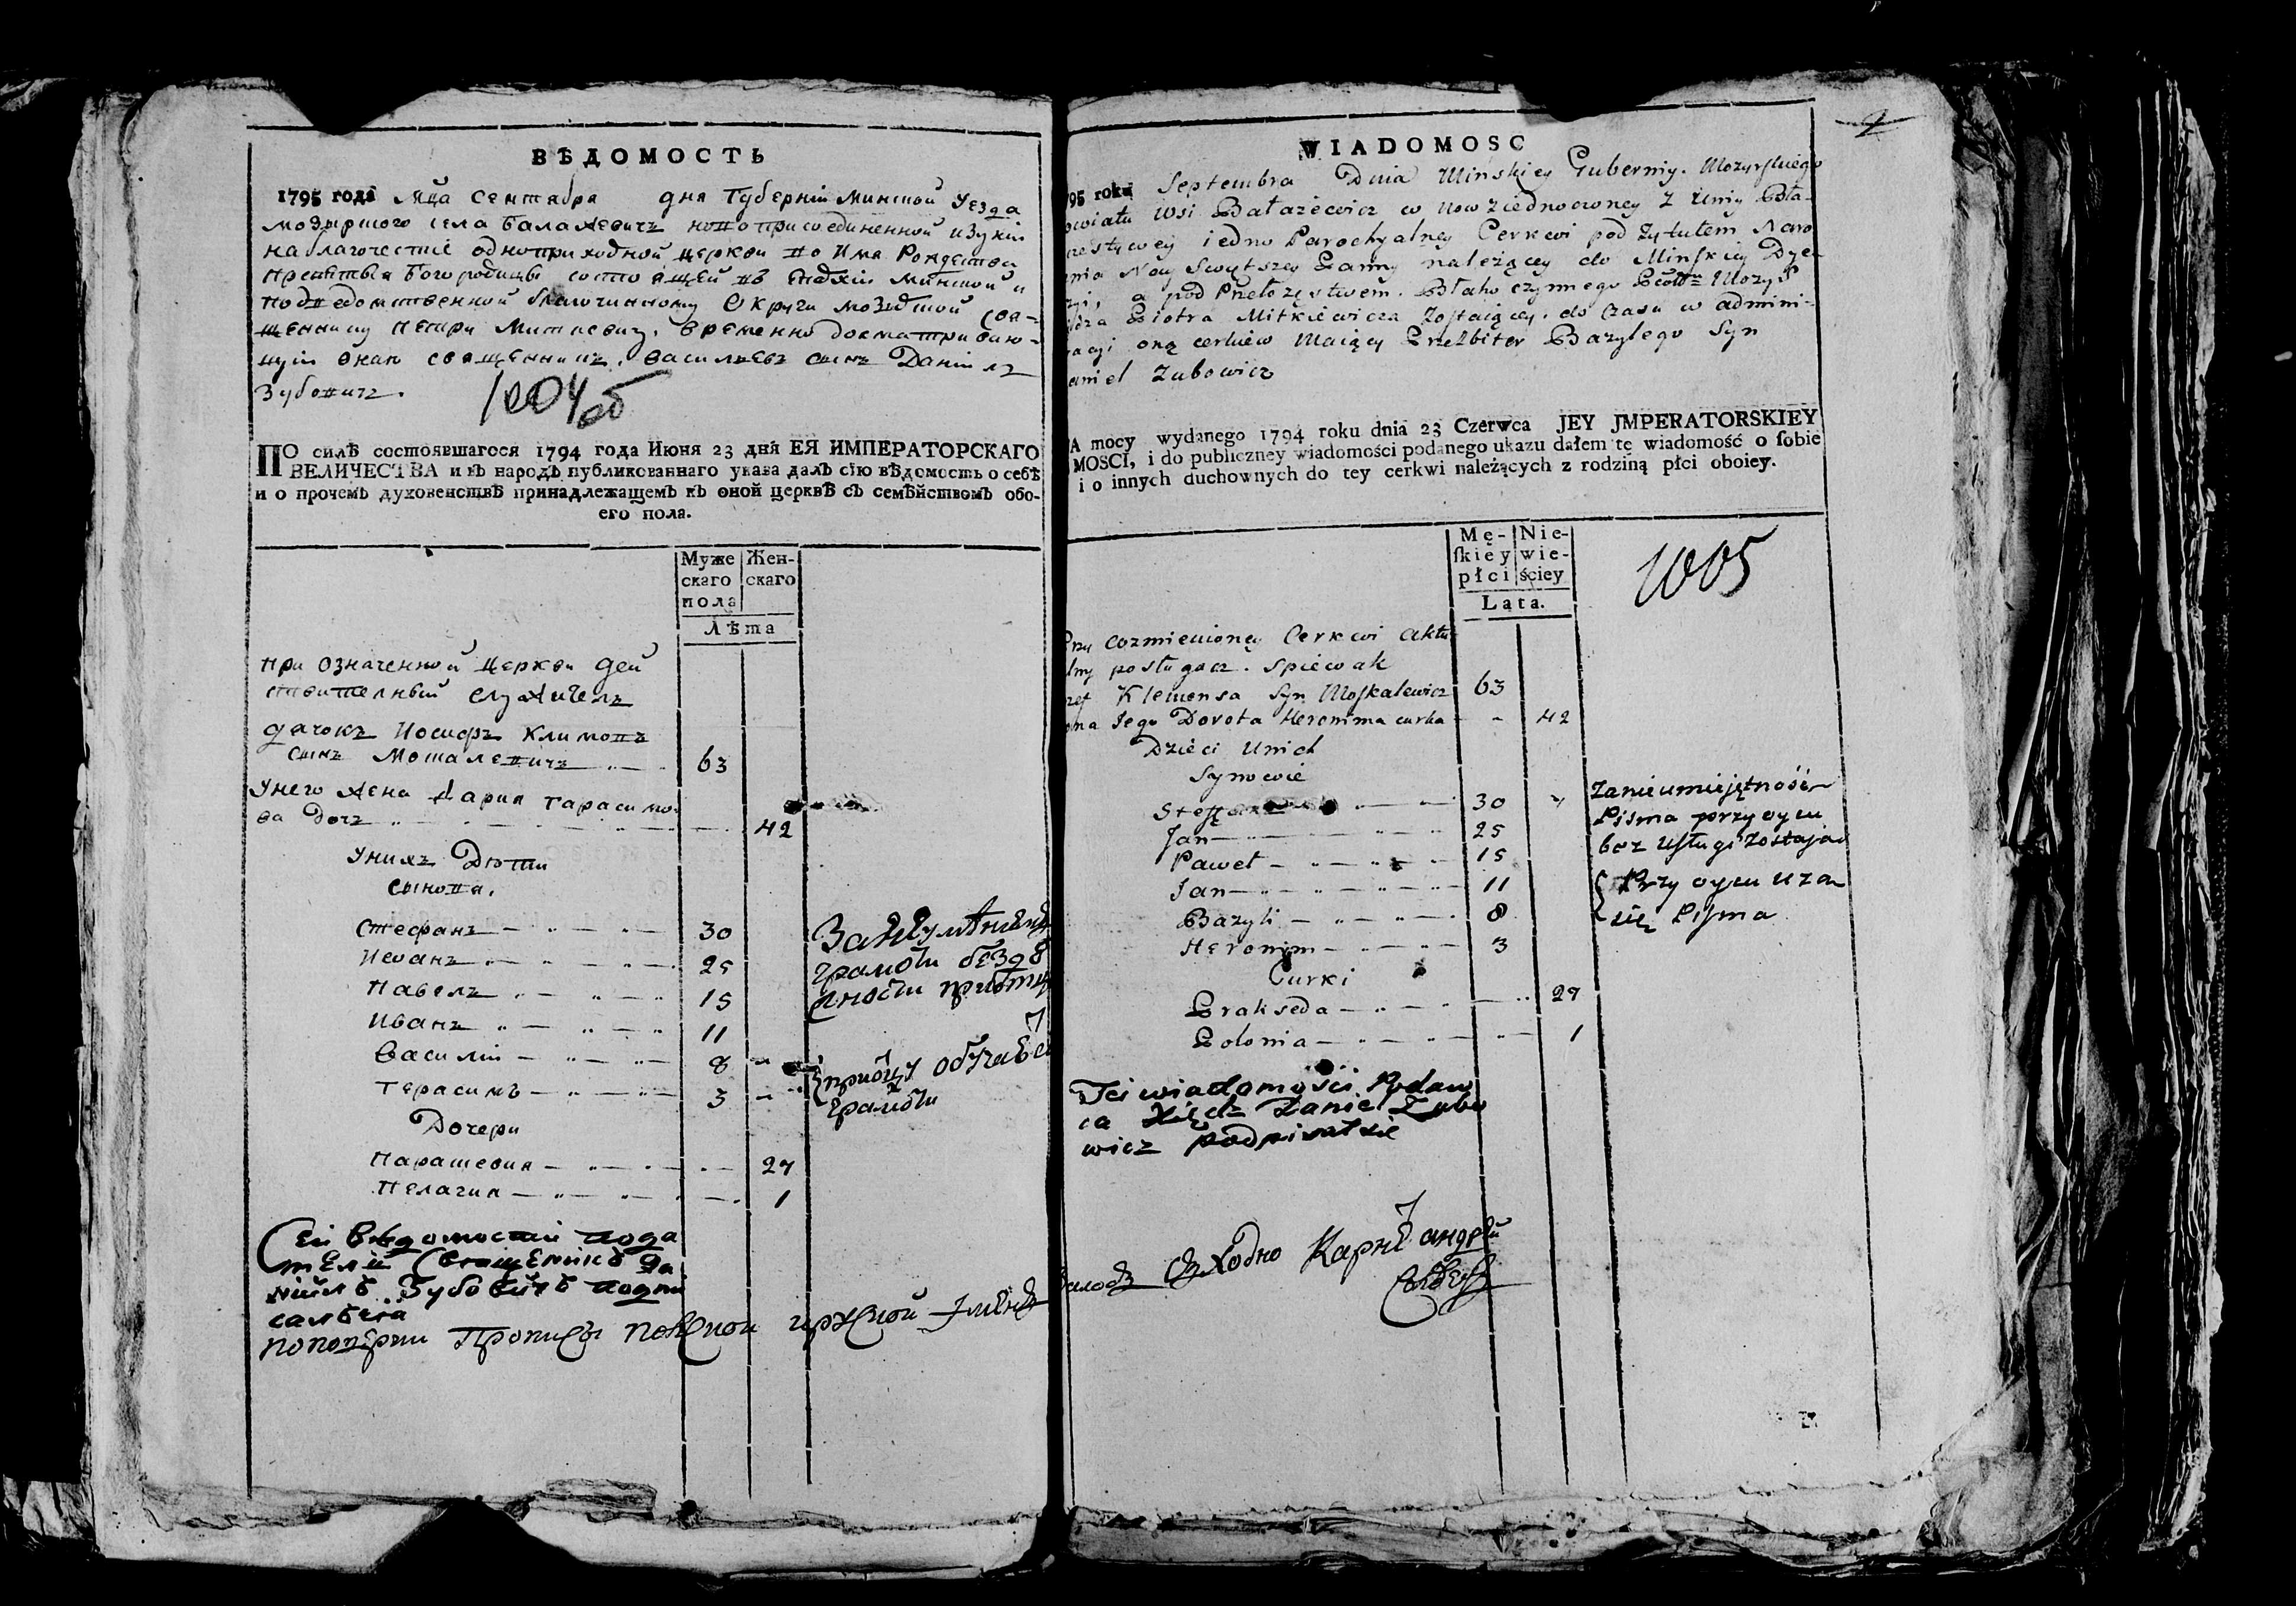 ВѢДОМОСТЬ
1795 года Мца Сентабра дня Губерніи Минской Уезда
мозырского села Балажевичъ новоприсоединенной изуніи
на благочестіе одноприходной церкви во Имя Рождества
престыя Богородицы состоящей въ Епархіи минской и
подведомственной благочинному Округи мозырской свя-
щеннику Петру Миткевичу. временно досматриваю-
щуй оную священникъ. васильевъ сынъ Даніилъ
Зубовичъ.
1004 об
ПО силѣ состоявшагося 1794 года Июня 23 дня ЕЯ ИМПЕРАТОРСКАГО
ВЕЛИЧЕСТВА и въ народъ публикованнаго указа далъ сїю вѣдомость о себѣ
и о прочемъ духовенствѣ принадлежащемъ къ оной церквѣ съ семѣйствомъ обо-
его пола.
Муже Жен-
скаго скаго
пола
Лѣта
при означенной церкви дей
ствителный служителъ
дячокъ Иосифъ Климовъ
сынъ Москалевичъ 63
Унего жена Дария Гарасимо
ва Дочъ 42
Унихъ Дѣти
сынова.
Стефанъ 30
Иванъ 25
Павелъ 15
Иванъ 11
Василій 8
Герасимъ 3
грамоти
Дочери
Параскевия 27
Пелагия 1
Сей ведомости пода
тель Священникъ Да
ніилъ Зубовичъ подпи
салься
WIADOMOSC
95 roku Septembra Dnia Minskiey Guberniy. Mozyrskiego
owiatu Wsi Bałażewicz w nowziednoczoney z Uniy Bła-
estywey iedno Parochyalney Cerkwi pod tytułem Naro
nia Nay Swiętszey Panny należącey do Minskiey Dye
zyi, a pod Przełozęstwem. Błahoczynnego Mozyr
Piotra Mitkiewicza zostaiącey. do czasu w admini-
racyi oną cerkiew Maiący Prezbiter Bazylego Syn
aniel Zubowicz
A mocy wydanego 1794 roku dnia 23 Czerwca JEY JMPERATORSKIEY
MOSCI, i do publiczney wiadomości podanego ukazu dałem tę wiadomość o ſobie
i o innych duchownych do tey cerkwi należących z rodziną płci oboiey.
1005
Mę- Nie-
ſkiey wie-
płci ściey
Lata.
Przy wzmienioney Cerkwi aktu
lny posługacz. Spiewak
zef Klemensa Syn Moskalewicz 63
ona Jego Dorota Heronima curka 42
Dzieci Unich
Synowie
Steffan 30
Jan 25
Paweł 15
Jan 11
Bazyli 8
Heronym 3
Zanieumiejętność
Pisma przy oycu
bez usługi zostaja
Przy oycu ucza
się Pisma
Curki
Prakseda 27
Polonia 1
Tei wiadomości Podaw
ca Xiędz Daniel Zubo
wicz podpisałsie